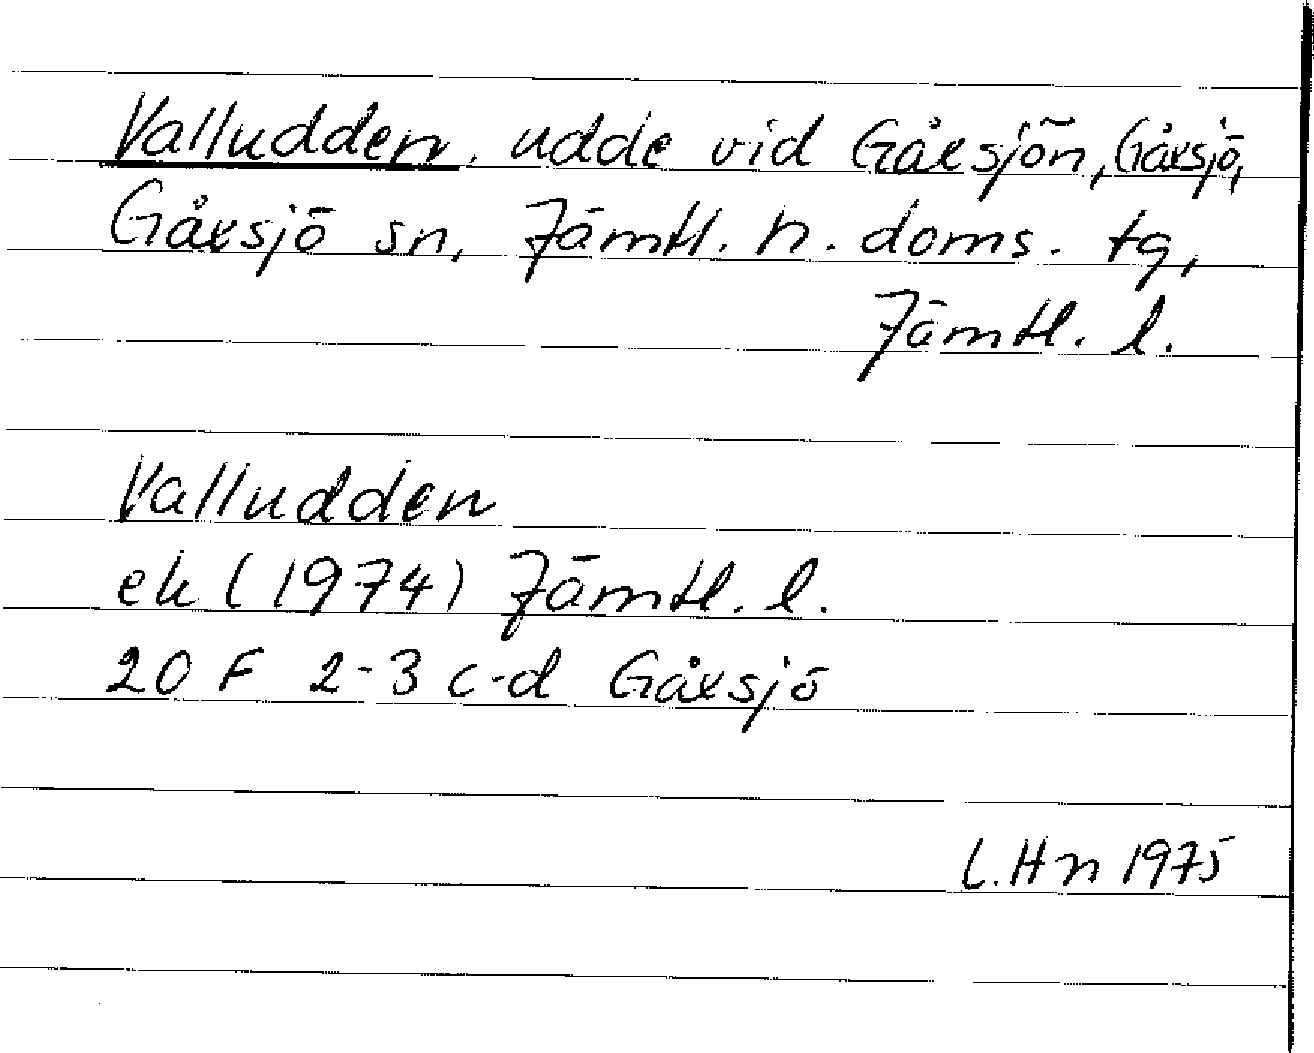 Valludden, udde vid Gåxsjön, Gåxsjö,
Gåxsjö sn, Jämtl. n. doms. tg,
Jämtl. l.
Valludden
ek (1974) Jämtl. l.
20 F 2-3 c-d Gåxsjö
L. Hn 1975